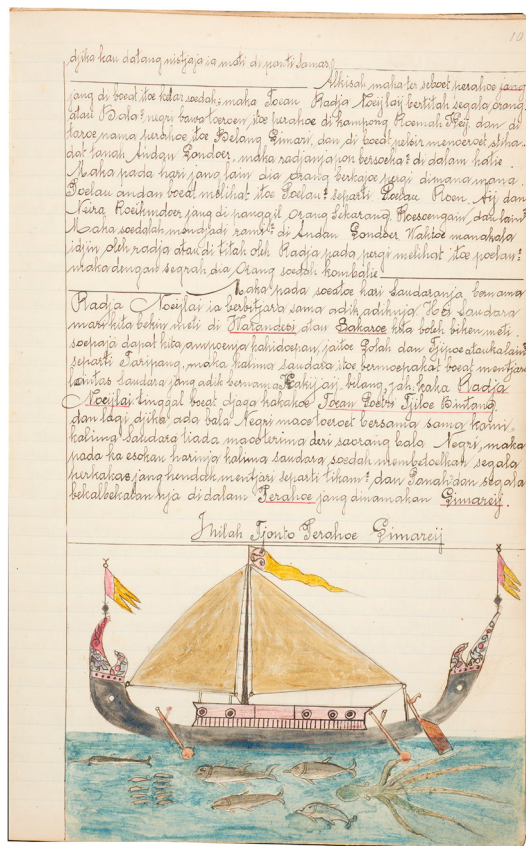 10
djika kau datang nistjaja ia mati di panti Samar
Alkisah maka terseboet perahoe jang
jang di boeat itoe kaloar soedah; maka Toean Radja Noeijlaij bertitah segala orang
atau Bala² negri bawa toeroen, itoe perahoe di kampong Roemah Keij, dan di
taroe nama perahoe itoe Belang Gimari, dan di boeat pesir menoeroet
dat tanah Andan Gondoer, maka radjanja pon bersoeka² di dalam hatie.
Maka pada hari jang lain dia orang berkajoe pergi dimana mana
Poelau andan boeat melihat itoe Poelau² separti Poelau Roen, Aij dan
Neira jang di panggil Orang Sekarang dan lain²
Maka soedahlah mendjadi di Andan Gondoer. Waktoe manakala
idjin oleh radja atau di titah oleh Radja pada pergi melihat itoe poelau²
maka dengan segrah dia Orang soedah kombalie
Maka pada soeatoe hari Saudaranja bernama
Radja Noeijlai ia berbitjara sama adik adiknja. Hei Saudara
mari kita bekin meti di Warandeer atau Dakaroe kita boleh bikin meti
soepaja dapat kita kahidoepan, jaitoe Lolah dan Tjipoe ataukalain²
separti Taripang, maka kalima saudara itoe bermoephakat boeat mentjari
lantas saudara jang adik bernama Kakijaij, bilang, jah: kaka Radja
Noeijlai tinggal boeat djaga kakakoe Toean Poetri Tjiloe Bintang
dan lagi djika ada bala Negri maoe toeroet bersama sama kami,
kalima saudara tiada maoe terima deri saorang bala Negri, maka
pada ka esokan harinja kalima saudara soedah membetoelkan segala
perkakas jang hendak mentjari separti tikam², dan Panah dan segala
bekal bekalan nja di dalam Perahoe jang dinamakan Gimareij.
Inilah Tjonto Perahoe Gimareij